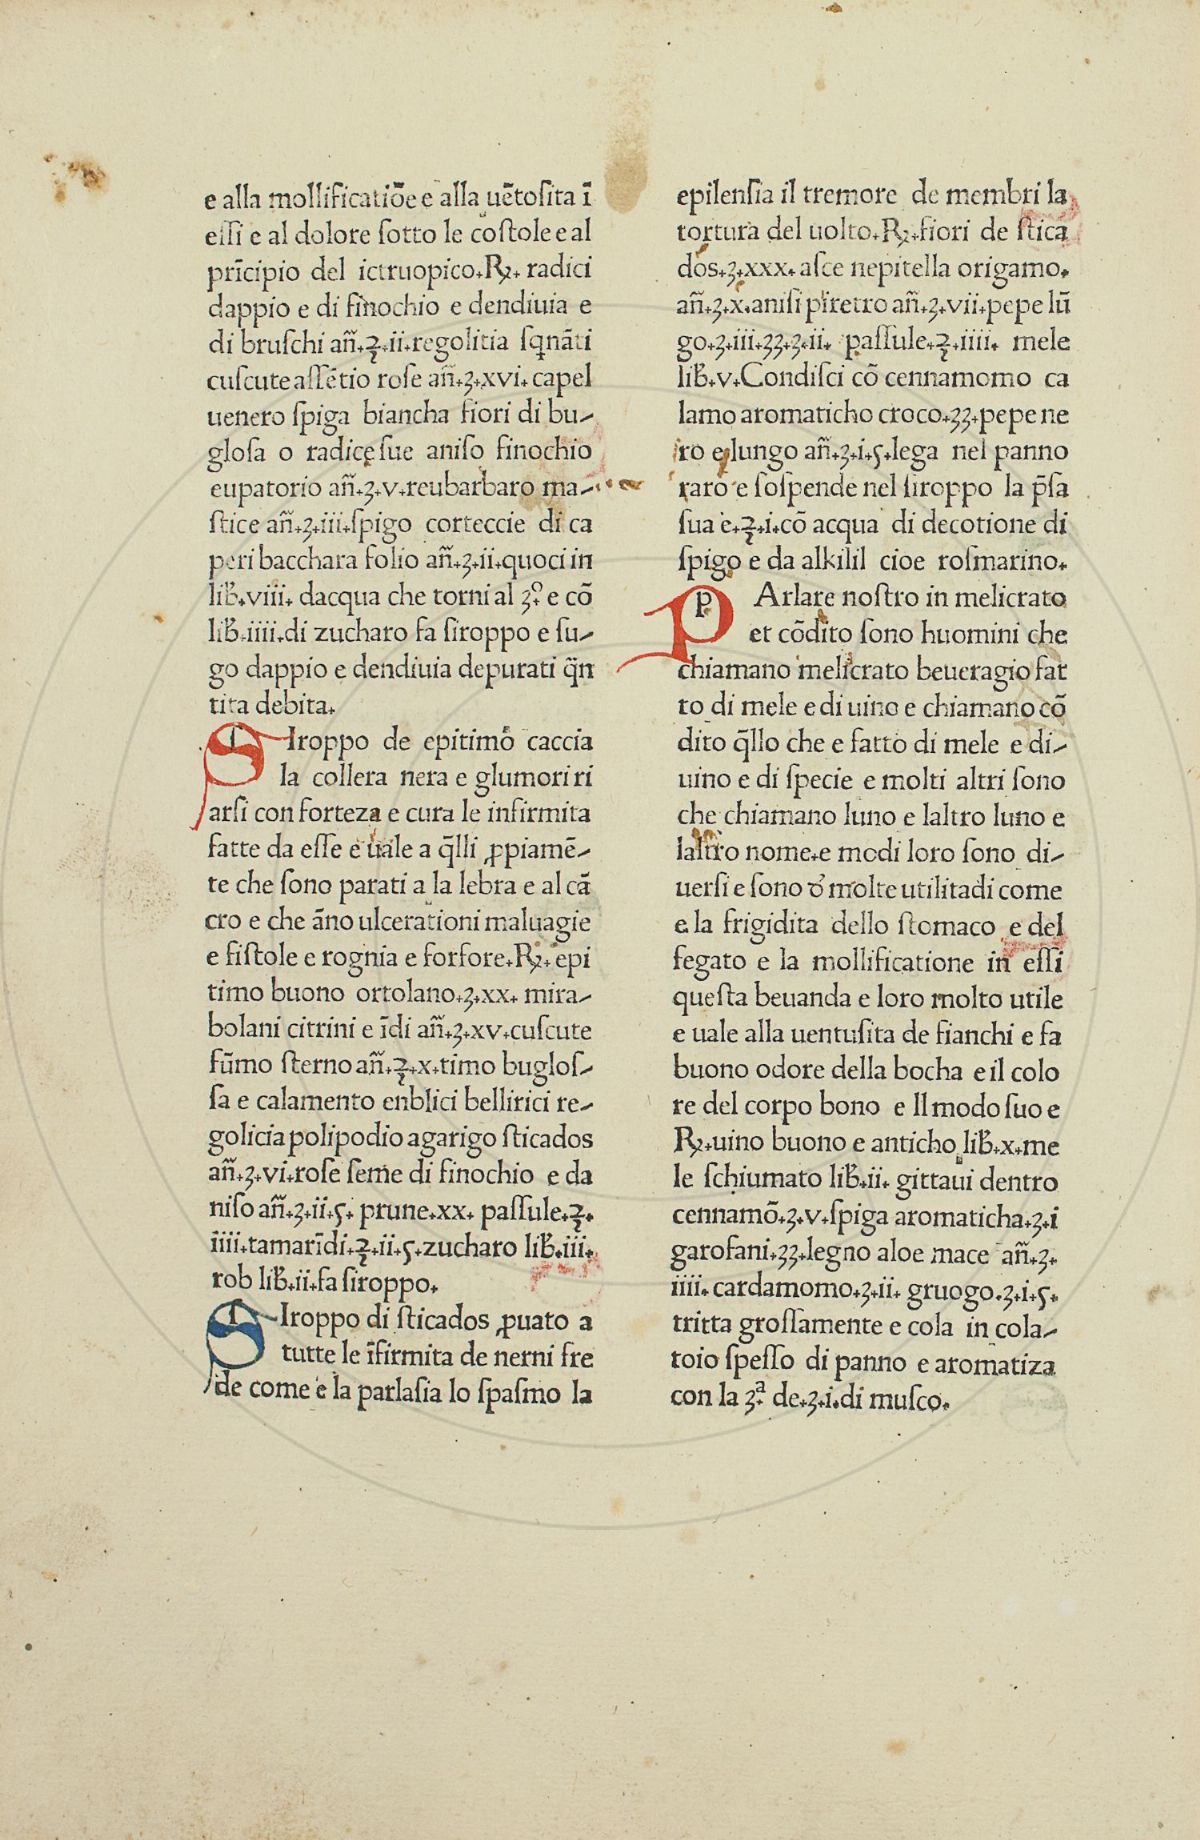 e alla mollificatiōe e alla uētosita ī
eſſi e al dolore ſotto le coſtole e al
prīcipio del ictruopico.℞. radici
dappio e di finochio e dendiuia e
di bruſchi añ.℥.ii.regolitia ſqnāti
cuſcute aſſētio roſe añ.ʒ.xvi.capel
uenero ſpiga biancha fiori di bu⸗
gloſa o radice ſue aniſo finochio
eupatorio añ.ʒ.v.reubarbaro ma⸗
ſtice añ.ʒ.iii.ſpigo corteccie di ca
peri bacchara folio añ.ʒ.ii.quoci in
lib̄.viii. dacqua che torni al ʒ.º e cō
lib̄.iiii.di zucharo fa ſiroppo e ſu⸗
go dappio e dendiuia depurati q̄n
tita debita.
SIroppo de epitimō caccia
la collera nera e glumori ri
arſi con forteza e cura le infirmita
fatte da eſſe e uale a q̄lli ꝓpiamē⸗
te che ſono parati a la lebra e al cā
cro e che āno ulcerationi maluagie
e fiſtole e rognia e forfore.℞. epi
timo buono ortolano.ʒ.xx. mira⸗
bolani citrini e īdi añ.ʒ.xv.cuſcute
fūmo ſterno añ.℥.x.timo bugloſ⸗
ſa e calamento enblici bellirici re⸗
golicia polipodio agarigo ſticados
añ.ʒ.vi.roſe ſeme di finochio e da
niſo añ.ʒ.ii.ς. prune.xx. paſſule.℥.
iiii.tamarīdi.℥.ii.ς.zucharo lib̄.iii.
rob lib̄.ii.fa ſiroppo.
SIroppo di ſticados ꝓuato a
tutte le īfirmita de nerni fre
de come e la parlaſia lo ſpaſmo la
epilenſia il tremore de membri la
tortura del uolto.℞.fiori de ſtica
dos.ʒ.xxx.aſce nepitella origamo.
añ.ʒ.x.aniſi piretro añ.ʒ.vii.pepe lū
go.ʒ.iii.ʒʒ.ʒ.ii. paſſule.℥.iiii. mele
lib̄.v.Condiſci cō cennamomo ca
lamo aromaticho croco.ʒʒ.pepe ne
ro e lungo añ.ʒ.i.ς.lega nel panno
raro e ſoſpende nel ſiroppo la p̄ſa
ſua e.℥.i.cō acqua di decotione di
ſpigo e da alkilil cioe roſmarino.
PArlare noſtro in melicrato
et cōdito ſono huomini che
chiamano melicrato beueragio fat
to di mele e di uino e chiamano cō
dito q̄llo che e fatto di mele e di⸗
uino e di ſpecie e molti altri ſono
che chiamano luno e laltro luno e
laltro nome.e modi loro ſono di⸗
uerſi e ſono d̄ molte utilitadi come
e la frigidita dello ſtomaco e del
fegato e la mollificatione in eſſi
queſta beuanda e loro molto utile
e uale alla uentuſita de fianchi e fa
buono odore della bocha e il colo
re del corpo bono e Il modo ſuo e
℞.uino buono e anticho lib̄.x.me
le ſchiumato lib̄.ii. gittaui dentro
cennamō.ʒ.v.ſpiga aromaticha.ʒ.i
garofani.ʒʒ.legno aloe mace añ.ʒ.
iiii.cardamomo.ʒ.ii. gruogo.ʒ.i.ς.
tritta groſſamente e cola in cola⸗
toio ſpeſſo di panno e aromatiza
con la ʒ.ª de.ʒ.i.di muſco.